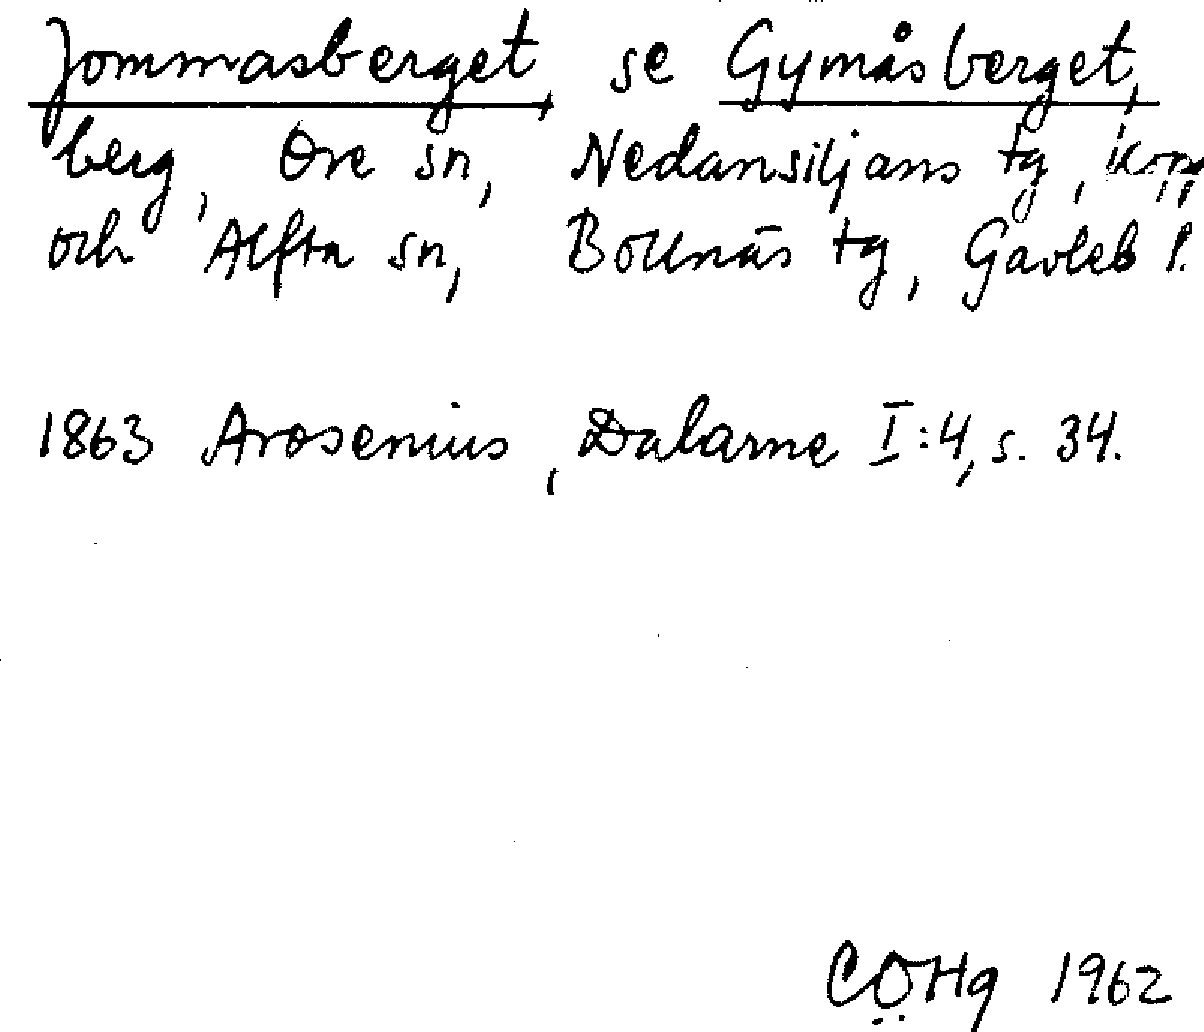 Jommasberget, se Gymåsberget,
berg, Ore sn, Nedansiljans tg, Kopp
och Alfta sn, Bollnäs tg, Gävleb l.
1863 Arosenius, Dalarne I:4, s. 34.
CÖHg 1962